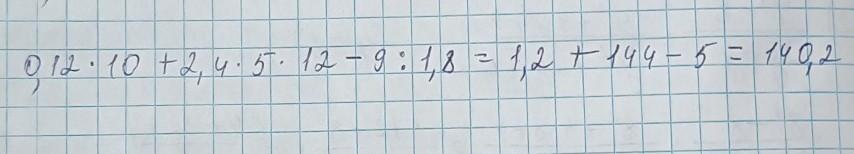 0,12 · 10 + 2,4 · 5 · 12 - 9 : 1,8 = 1,2 + 144 - 5 = 140,2